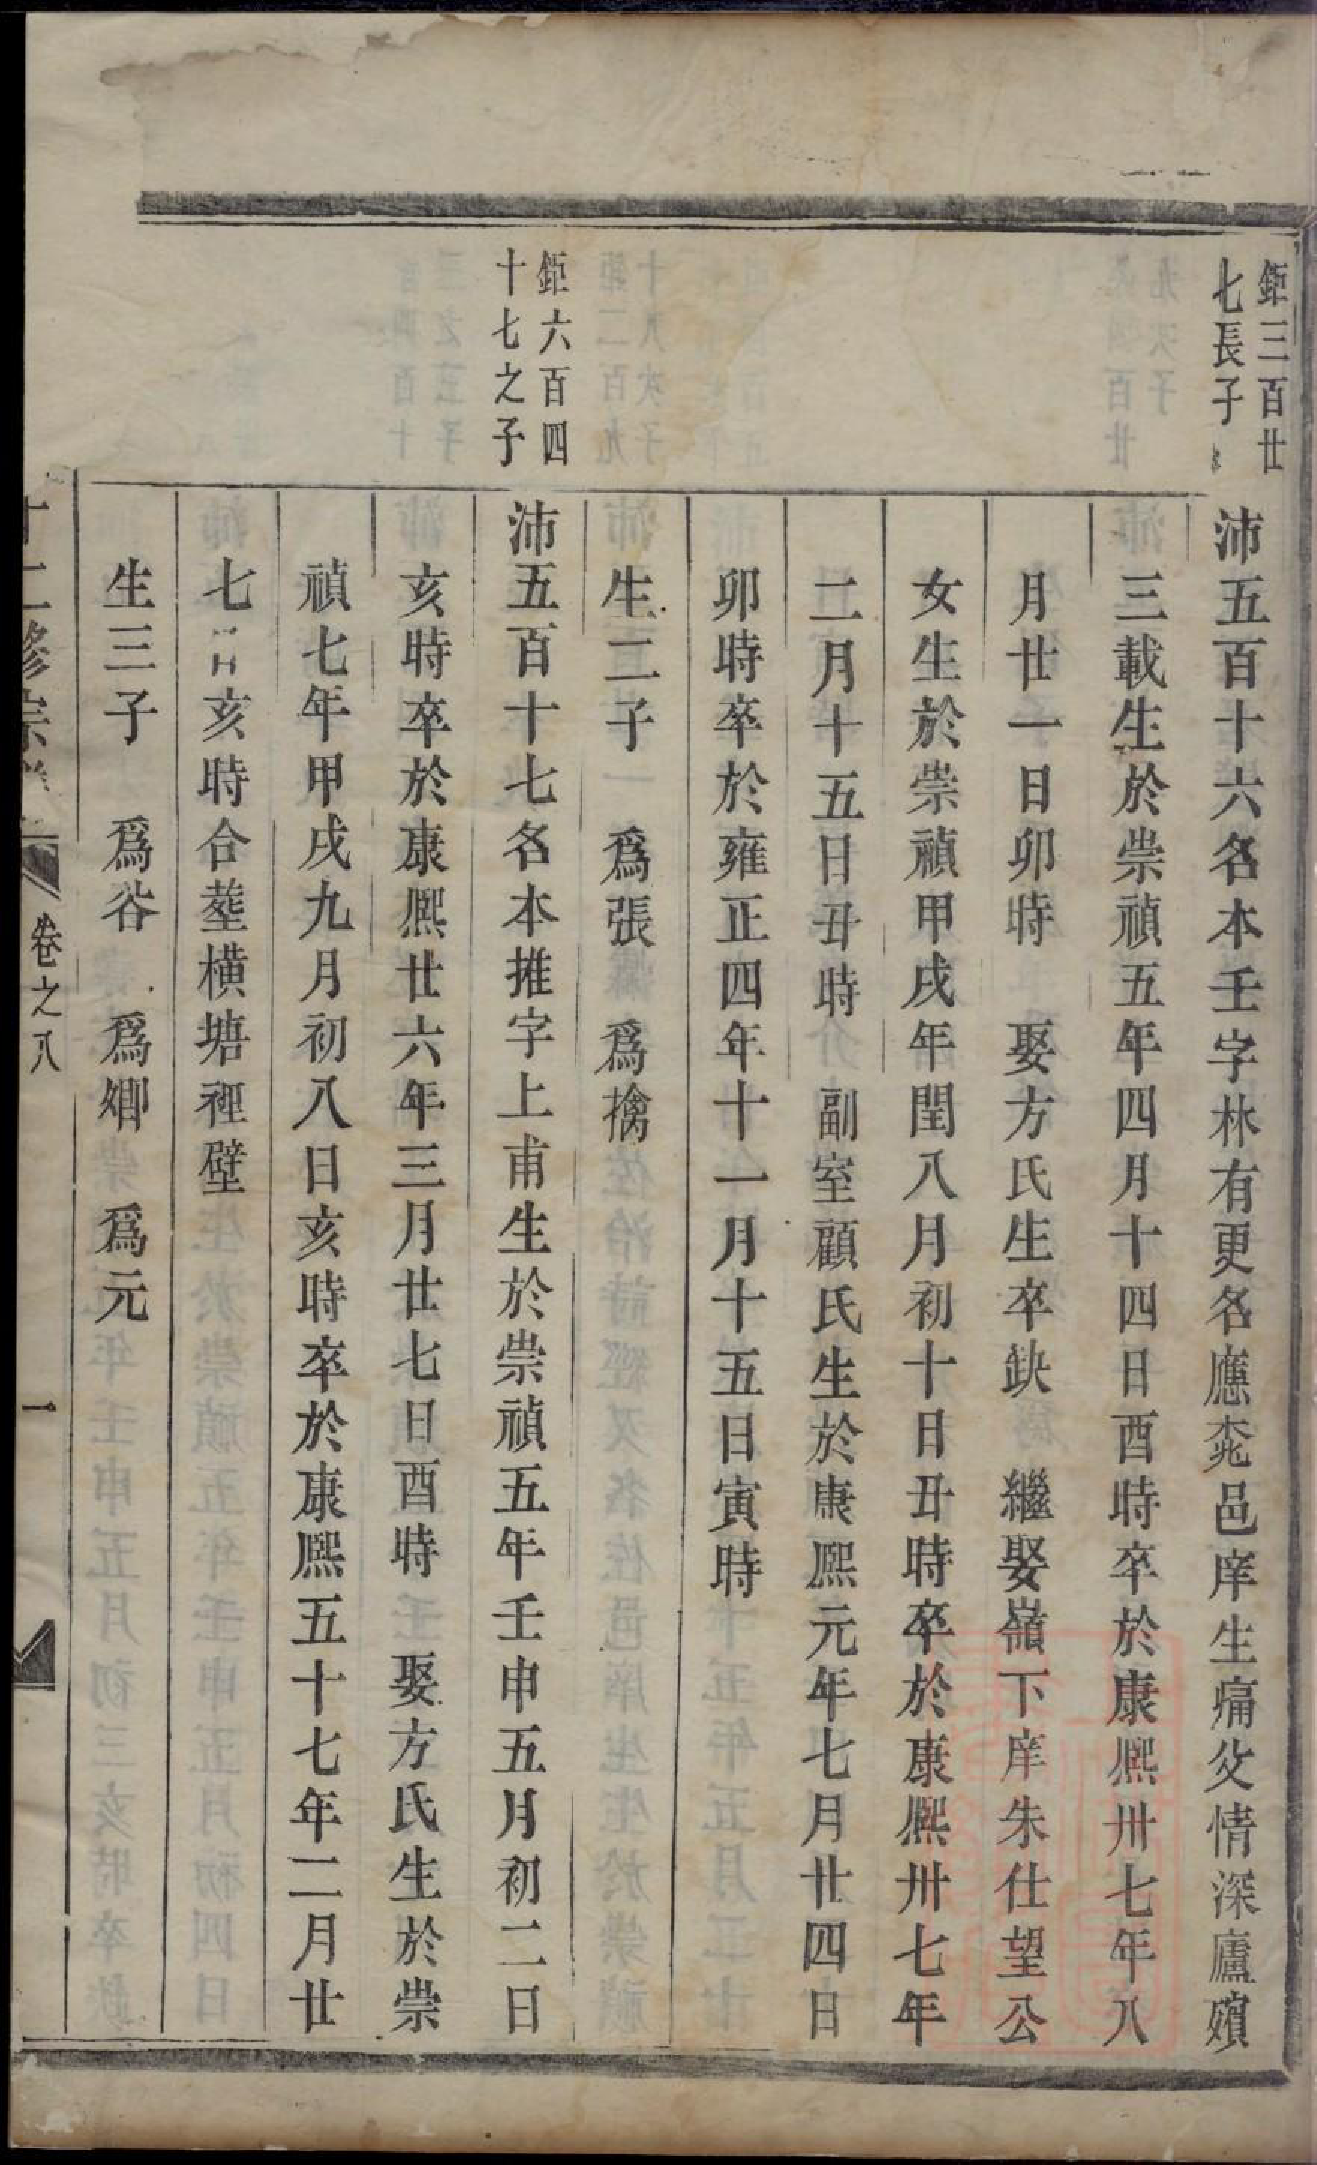 鉅三百廿
七長子
沛五百十六名本壬字林有更名應桼邑庠生痛父情深廬殯
三載生於崇禎五年四月十四日酉時卒於康熈卅七年八
月廿一日卯時　娶方氏生卒缺　繼娶嶺下庠朱仕望公
女生於崇禎甲戌年閏八月初十日丑時卒於康熈卅七年
二月十五日丑時　副室顧氏生於康熈元年七月廿四日
卯時卒於雍正四年十一月十五日寅時
生二子　爲張　爲擒
鉅六百四
十七之子
沛五百十七名本推字上甫生於崇禎五年壬申五月初二日
亥時卒於康熈廿六年三月廿七日酉時　娶方氏生於崇
禎七年甲戌九月初八日亥時卒於康熈五十七年二月廿
七日亥時合塟橫塘裡壁
生三子　爲谷　爲娜　爲元
十二修宗譜　卷之八　一